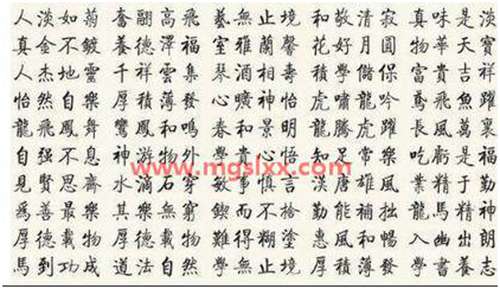 人淡如菊 奮翮高飛 藝無止境 和敬清寂 真味是淡
真金不鍍 養德澤福 室雅蘭馨 花好月圓 物華天寶
人杰地靈 千祥雲集 琴酒 壽 積學儲 富貴吉祥
怡然自樂 厚積薄發 心曠神怡 虎嘯龍吟 鳶飛魚躍
龍飛鳳舞 鸞鳳和鳴 春和景明 龍騰虎躍 長風萬裏
自强不息 神游物外 禪貴心悟 知足常樂 吃虧是福
見賢思齊 水滴石穿 敏事慎言 漢唐雄風 業精于勤
爲善最樂 其樂無窮 鍥而不捨 勤能補拙 龍馬精神
厚德載物 厚德載物 難得糊塗 惠風和暢 入幽出朗
馬到功成 道法自然 學無止境 厚積薄發 學書養志
www.mgslxx.com